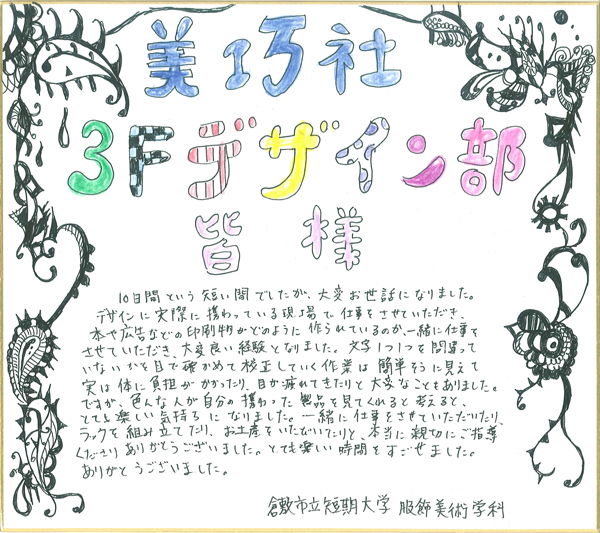 美巧社
3Fデザイン部
皆様
10日間という短い間でしたが、大変お世話になりました。
デザインに実際に携わっている現場で仕事をさせていただき、
本や広告などの印刷物がどのように作られているのか、一緒に仕事を
させていただき、大変良い経験となりました。文字1つ1つを間違って
いないかを目で確かめて校正していく作業は簡単そうに見えて
実は体に負担がかかったり、目が疲れてきたりと大変なこともありました。
ですが、色んな人が自分の携わった製品を見てくれると考えると、
とても楽しい気持ちになりました。一緒に仕事をさせていただいたり、
ラックを組み立てたり、お土産をいただいたりと、本当に親切にご指導
くださりありがとうございました。とても楽しい時間をすごせました。
ありがとうございました。
倉敷市立短期大学 服飾美術学科